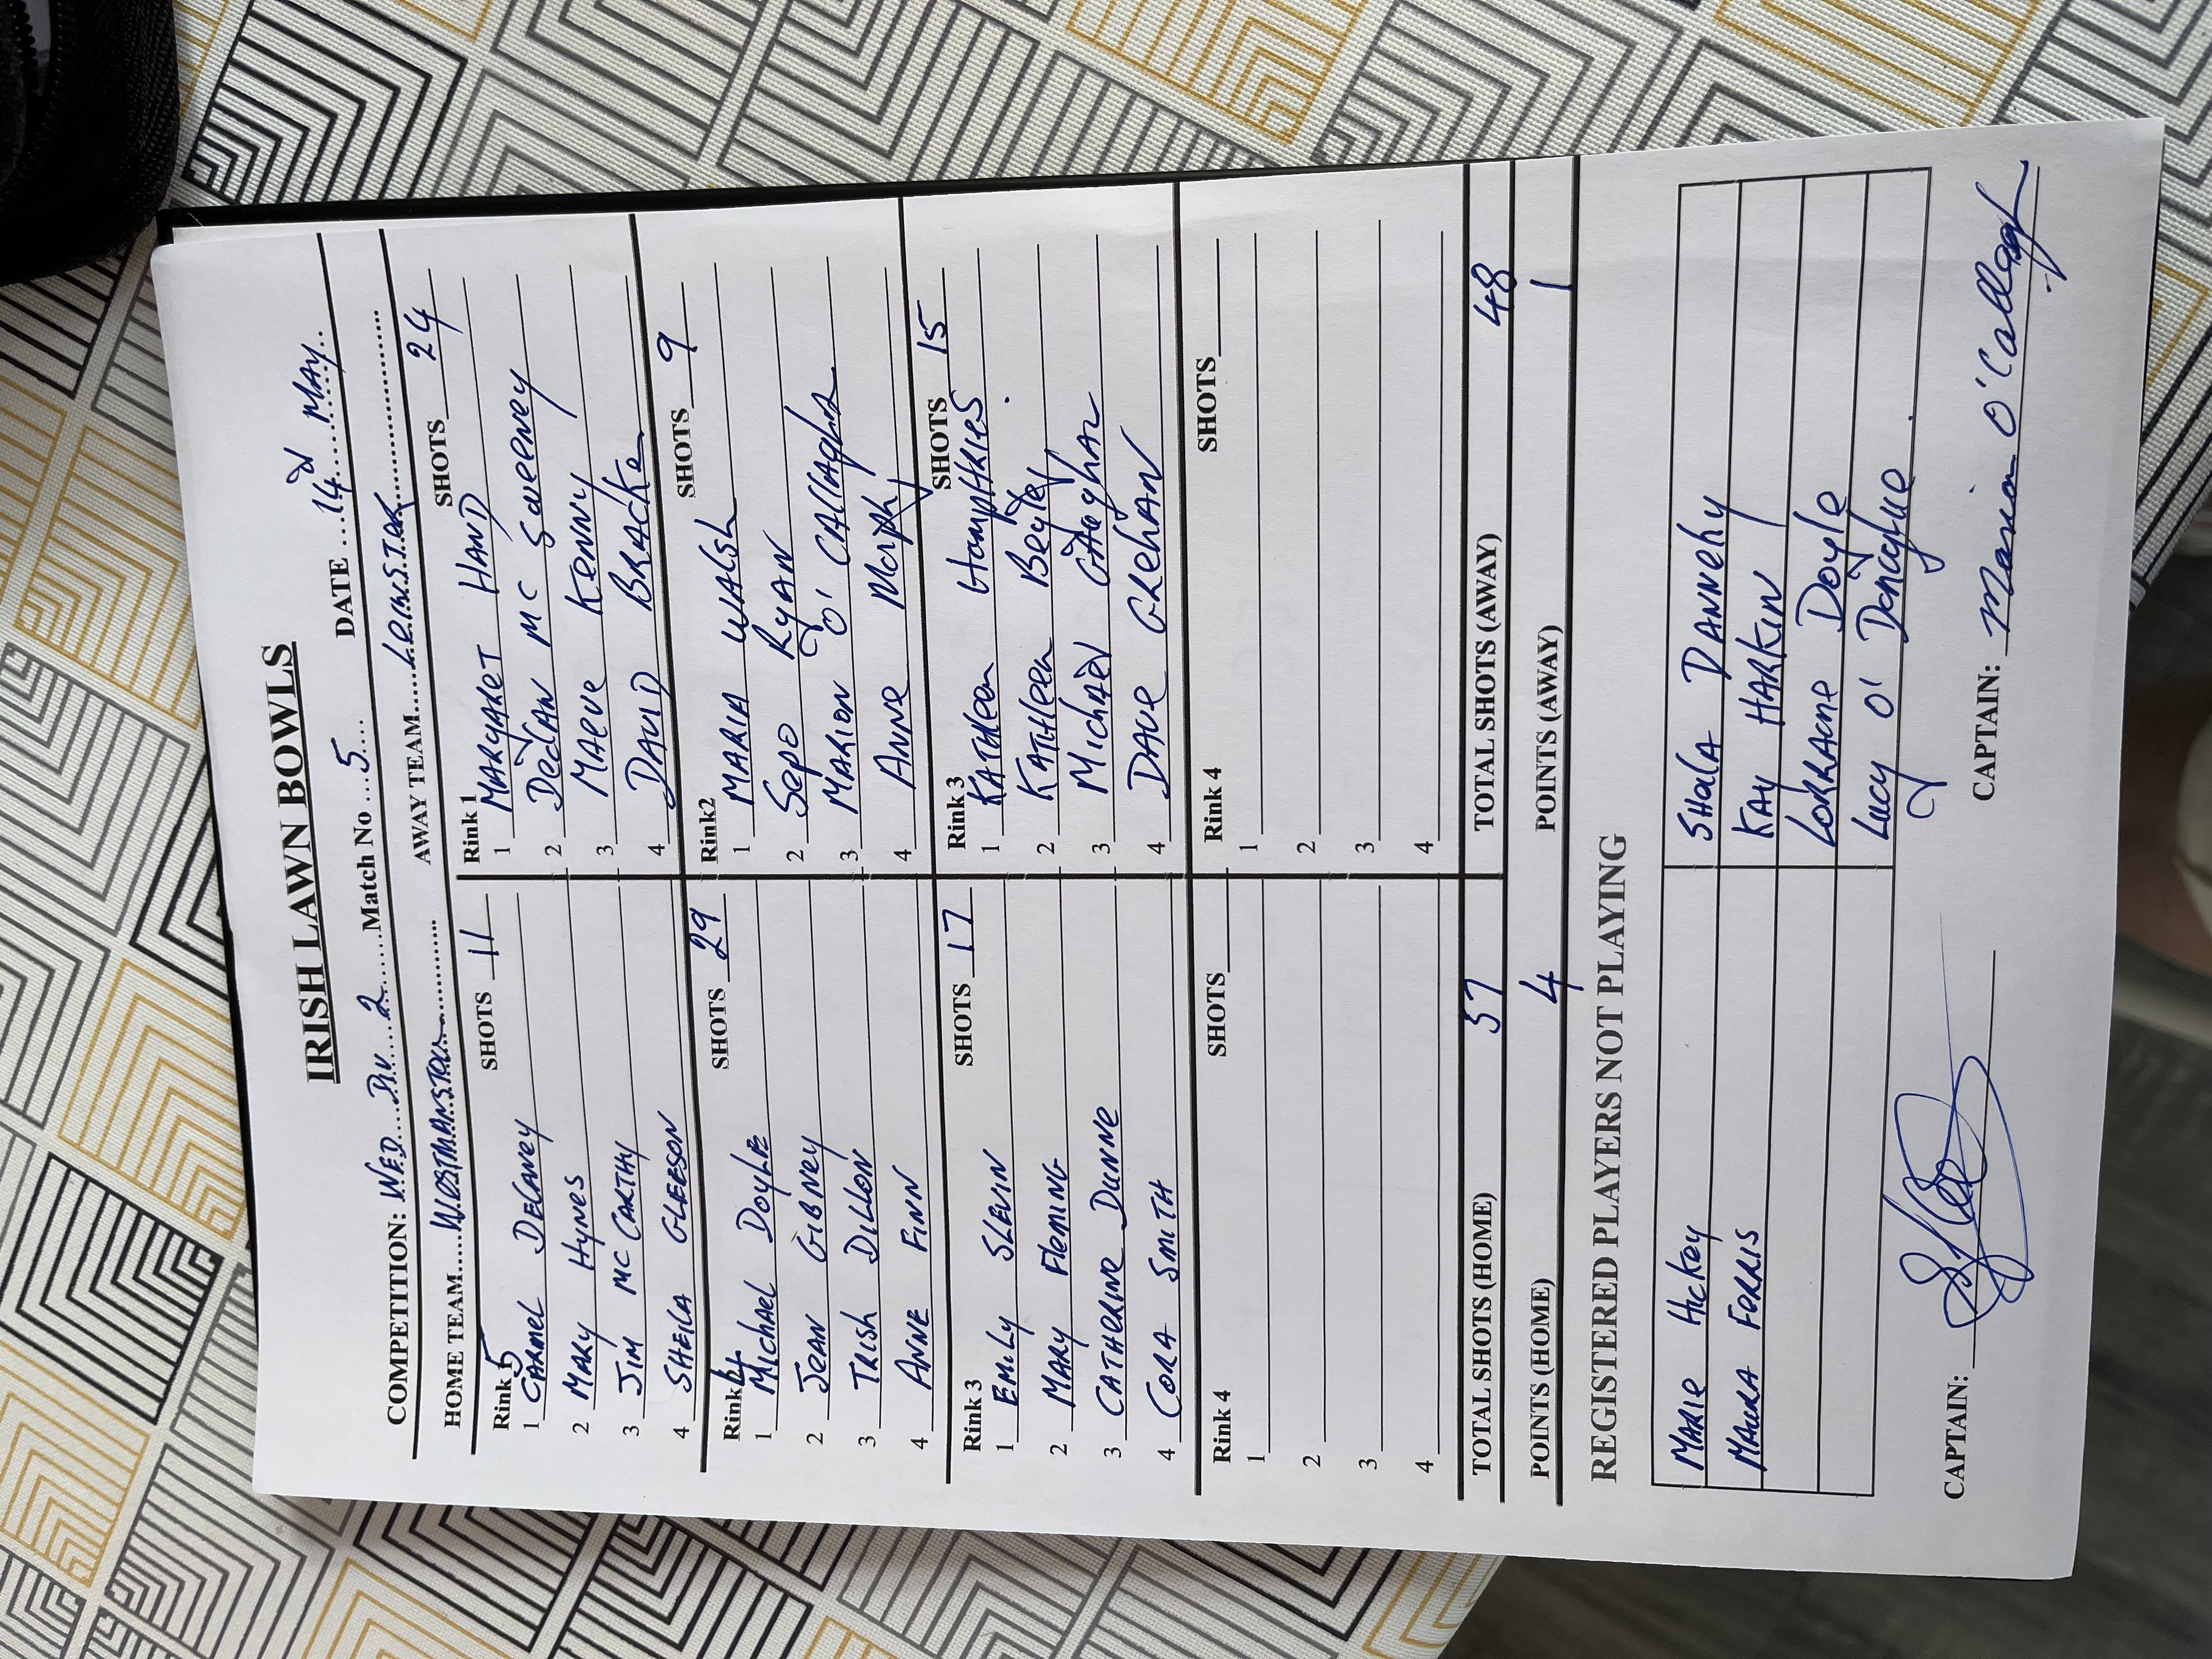 IRISH LAWN BOWLS
COMPETITION: WED DIV 2 Match No 5 DATE 14th MAY
HOME TEAM WESTMANSTOWN AWAY TEAM LEINSTER
Rink 5 SHOTS 11 Rink 1 SHOTS 24
1 CARMEL DELANEY 1 MARGARET HAND
2 MARY HYNES 2 DecLAN MC SweeNey
3 JIM MC CARTHY 3 MAeve KENNY
4 SHEILA GLEESON 4 DAVID BRACKe
Rink 4 SHOTS 29 Rink2 SHOTS 9
1 MIchAEL DOYLE 1 MARIA WALSh
2 JEAN GIBNEY 2 RYAN
3 TRISH DILLON 3 MARION O' CALLAghan
4 ANNE FINN 4 ANNe Morphy
Rink 3 SHOTS 17 Rink 3 SHOTS 15
1 EMILY SLEVIN 1 KATHleen HampHRIES
2 MARY FLeMING 2 KATHleen
3 CATHERINE DUNNE 3 MichAel
4 CORA SMITH 4 DAVE GReHAN
Rink 4 SHOTS Rink 4 SHOTS
1 1
2 2
3 3
4 4
TOTAL SHOTS (HOME) 57 TOTAL SHOTS (AWAY) 48
POINTS (HOME) 4 POINTS (AWAY) 1
REGISTERED PLAYERS NOT PLAYING
MARIE HICKEY SHeILA DANNEHY
MAURA FERRIS KAY HARKIN
LORRAINE Doyle
Lucy O' Donoghue
CAPTAIN: CAPTAIN: Marion O'Callagh